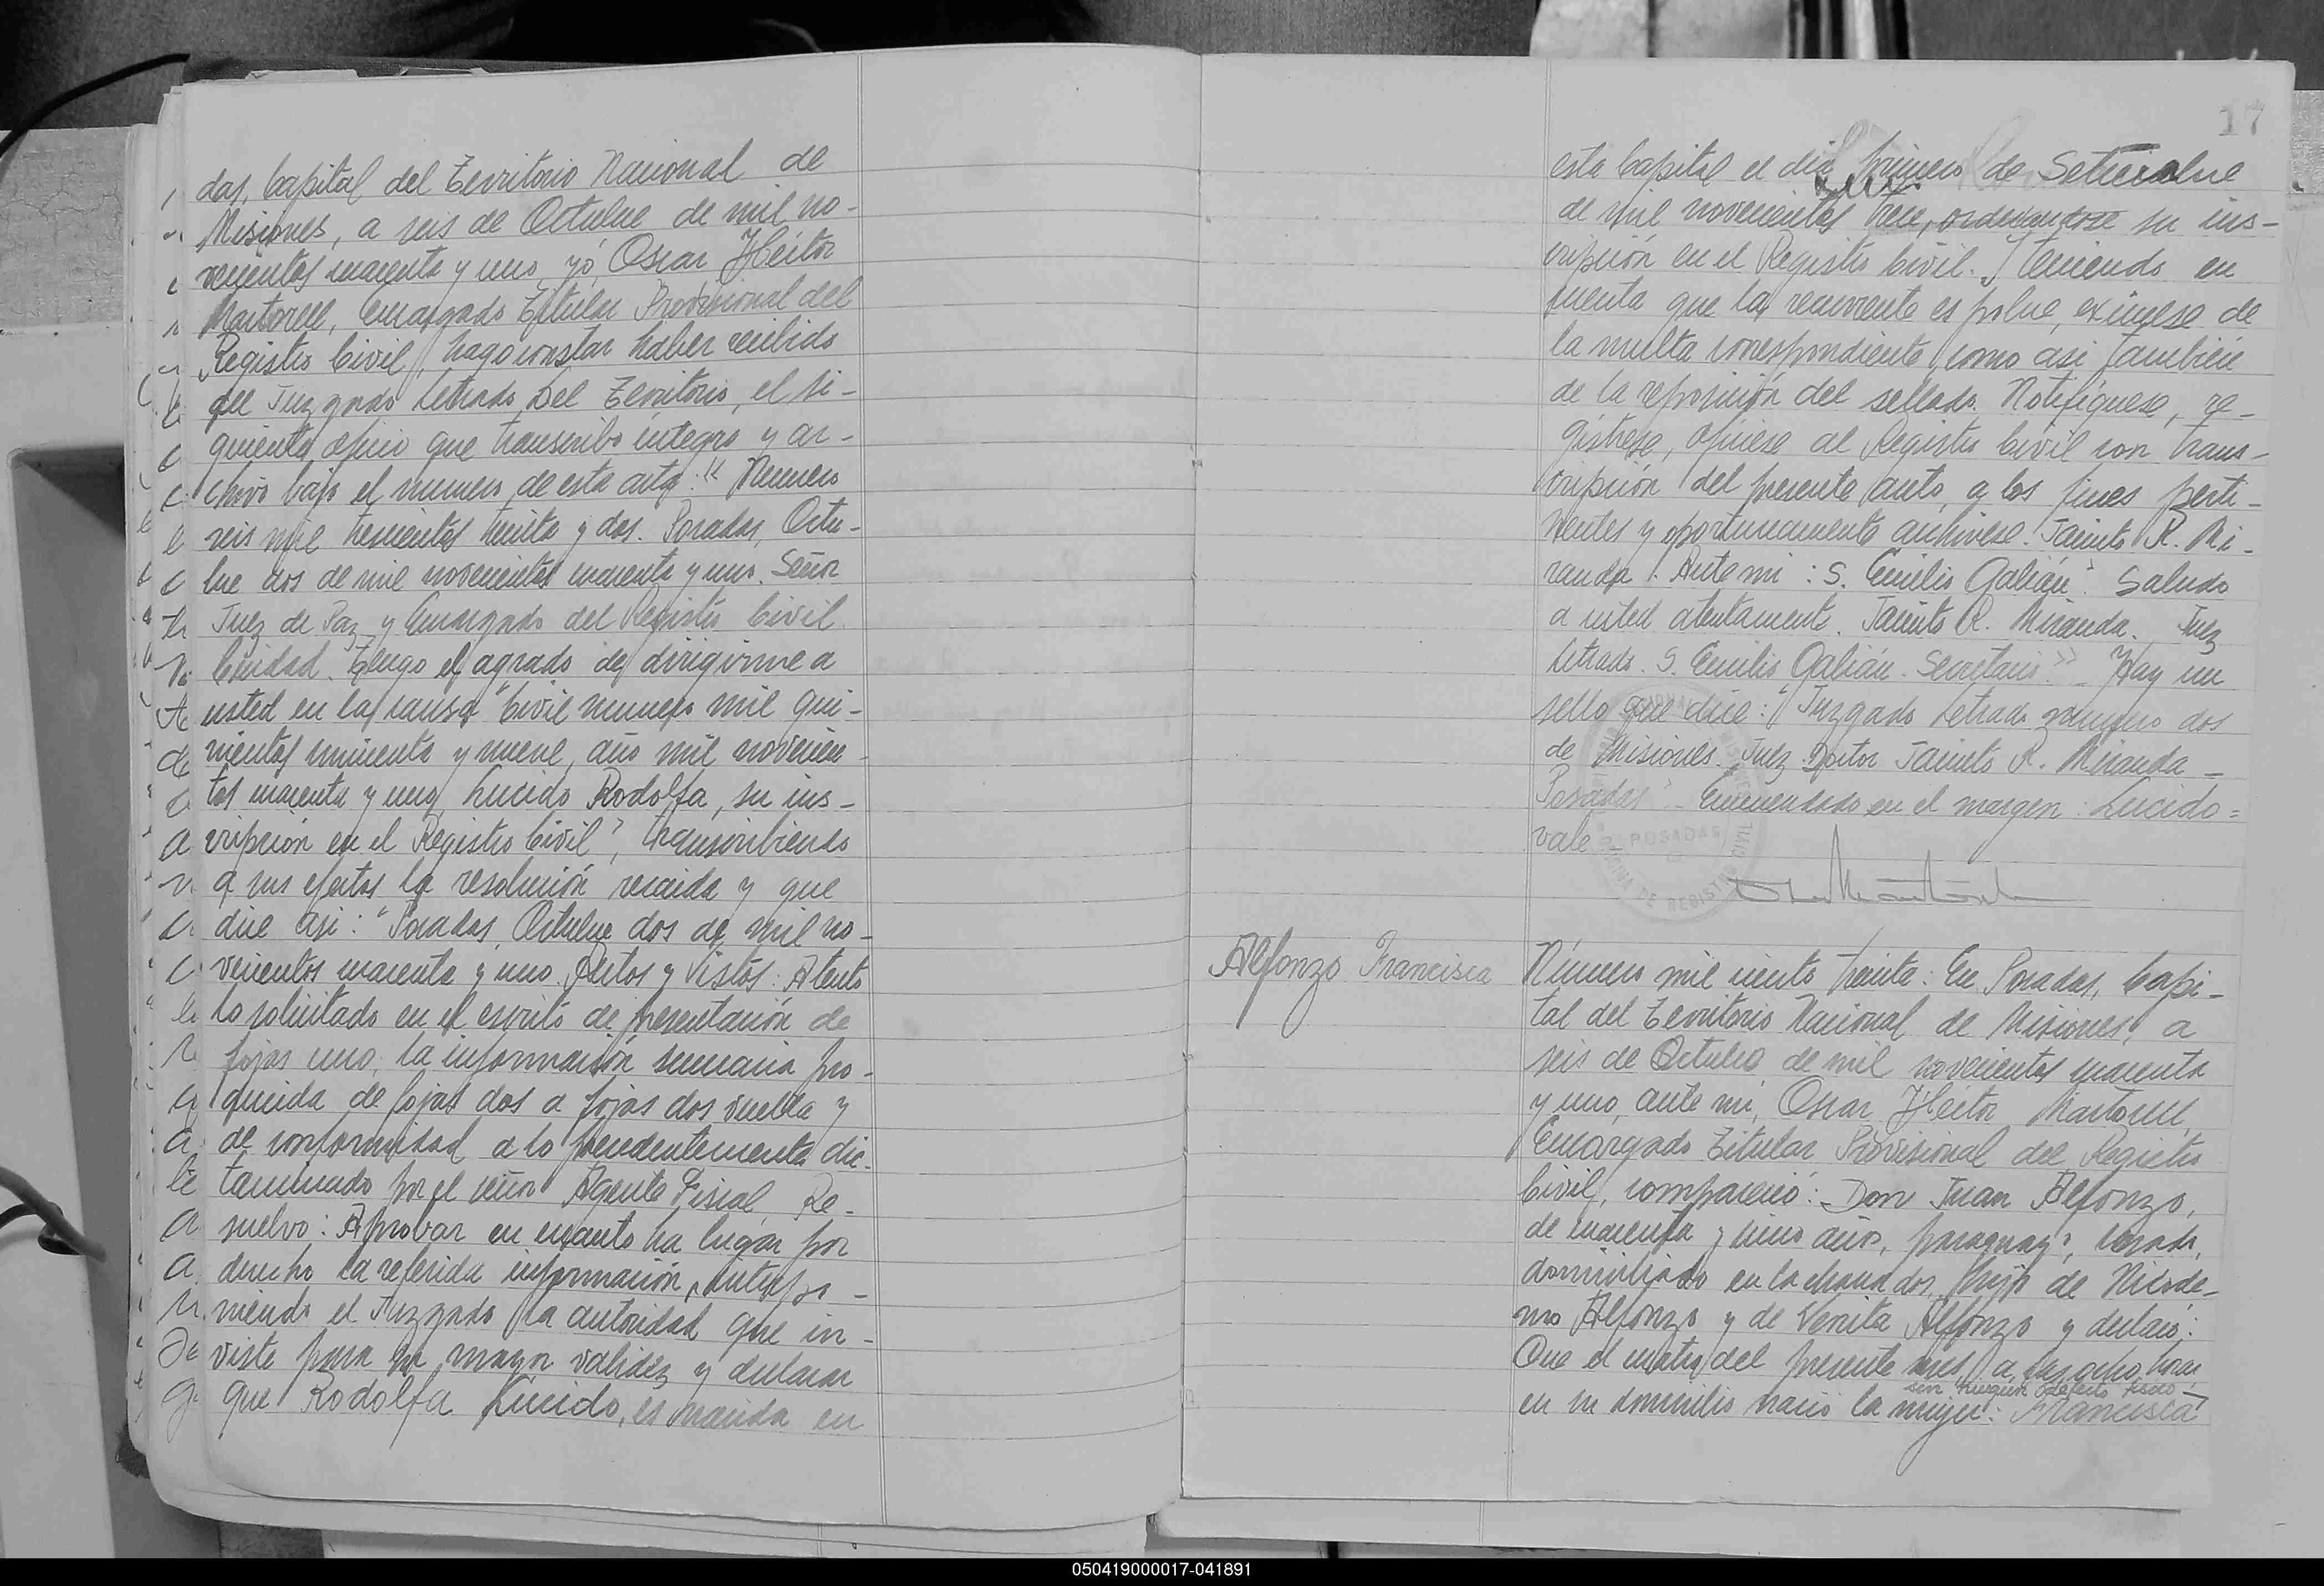 das, Capital del Territorio Nacional de
Misiones, a seis de Octubre de mil no-
vecientos cuarenta y uno, yó, Oscar Héctor
Martorell, Encargado Titular Provisional del
Registro Civil, hago constar haber recibido
del Juzgado Letrado Del Territorio, el si-
guiente oficio que transcribo íntegro y ar-
chivo bajo el numero de esta acta: "Numero
seis mil trescientos treinta y dos. Posadas, Octu-
bre dos de mil novecientos cuarenta y uno. Señor
Juez de Paz y Encargado del Registro Civil.
Ciudad. Tengo el agrado de dirigirme a
usted en la causa "Civil numero mil qui-
nientos cincuenta y nueve, año mil novecien-
tos cuarenta y uno, Lucido Rodolfa, su ins-
cripción en el Registro Civil", transcribiendo
a sus efectos la resolución recaida y que
dice asi: "Posadas, Octubre dos de mil no-
vecientos cuarenta y uno. Autos y Vistos: Atento
lo solicitado en el escrito de presentación de
fojas uno; la información sumaria pro-
ducida de fojas dos a fojas dos vuelta y
de conformidad a lo precedentemente dic-
taminado por el señor Agente Fiscal, Re-
suelvo: Aprobar en cuanto ha lugar por
derecho la referida información, interpo-
niendo el Juzgado la autoridad que in-
viste para su mayor validez y declarar
que Rodolfa Lucido, es nacida en
17
esta Capital el dia primero de Setiembre
de mil novecientos trece, ordenandose su ins-
cripción en el Registro Civil. Teniendo en
cuenta que la recurrente es pobre, exímese de
la multa correspondiente, como asi tambien
de la reposición del sellado. Notifíquese, re-
gístrese, ofíciese al Registro Civil con trans-
cripción del presente auto, a los fines perti-
nentes y oportunamente archívese. Jacinto R. Mi-
randa. Ante mi: S. Emilio Galián". Saludo
a usted atentamente. Jacinto R. Miranda. Juez
Letrado. S. Emilio Galián. Secretario." Hay un
sello que dice: "Juzgado Letrado numero dos
de Misiones. Juez Doctor Jacinto R. Miranda -
Posadas". Enmendado en el margen: Lucido=
vale
POSADAS
OFICINA DE REGISTRO CIVIL
Alfonzo Francisca
Número mil ciento treinta: En Posadas, Capi-
tal del Territorio Nacional de Misiones, a
seis de Octubre de mil novecientos cuarenta
y uno, ante mi, Oscar Héctor Martorell,
Encargado Titular Provisional del Registro
Civil, compareció: Don Juan Alfonzo,
de cuarenta y cinco años, paraguayo, casado,
domiciliado en la chacra dos, hijo de Nicode-
mo Alfonzo y de Venita Alfonzo y declaró:
Que el cuatro del presente mes, a las ocho horas
sin ningun defecto fisico
en su domicilio nació la mujer: Francisca
050419000017-041891